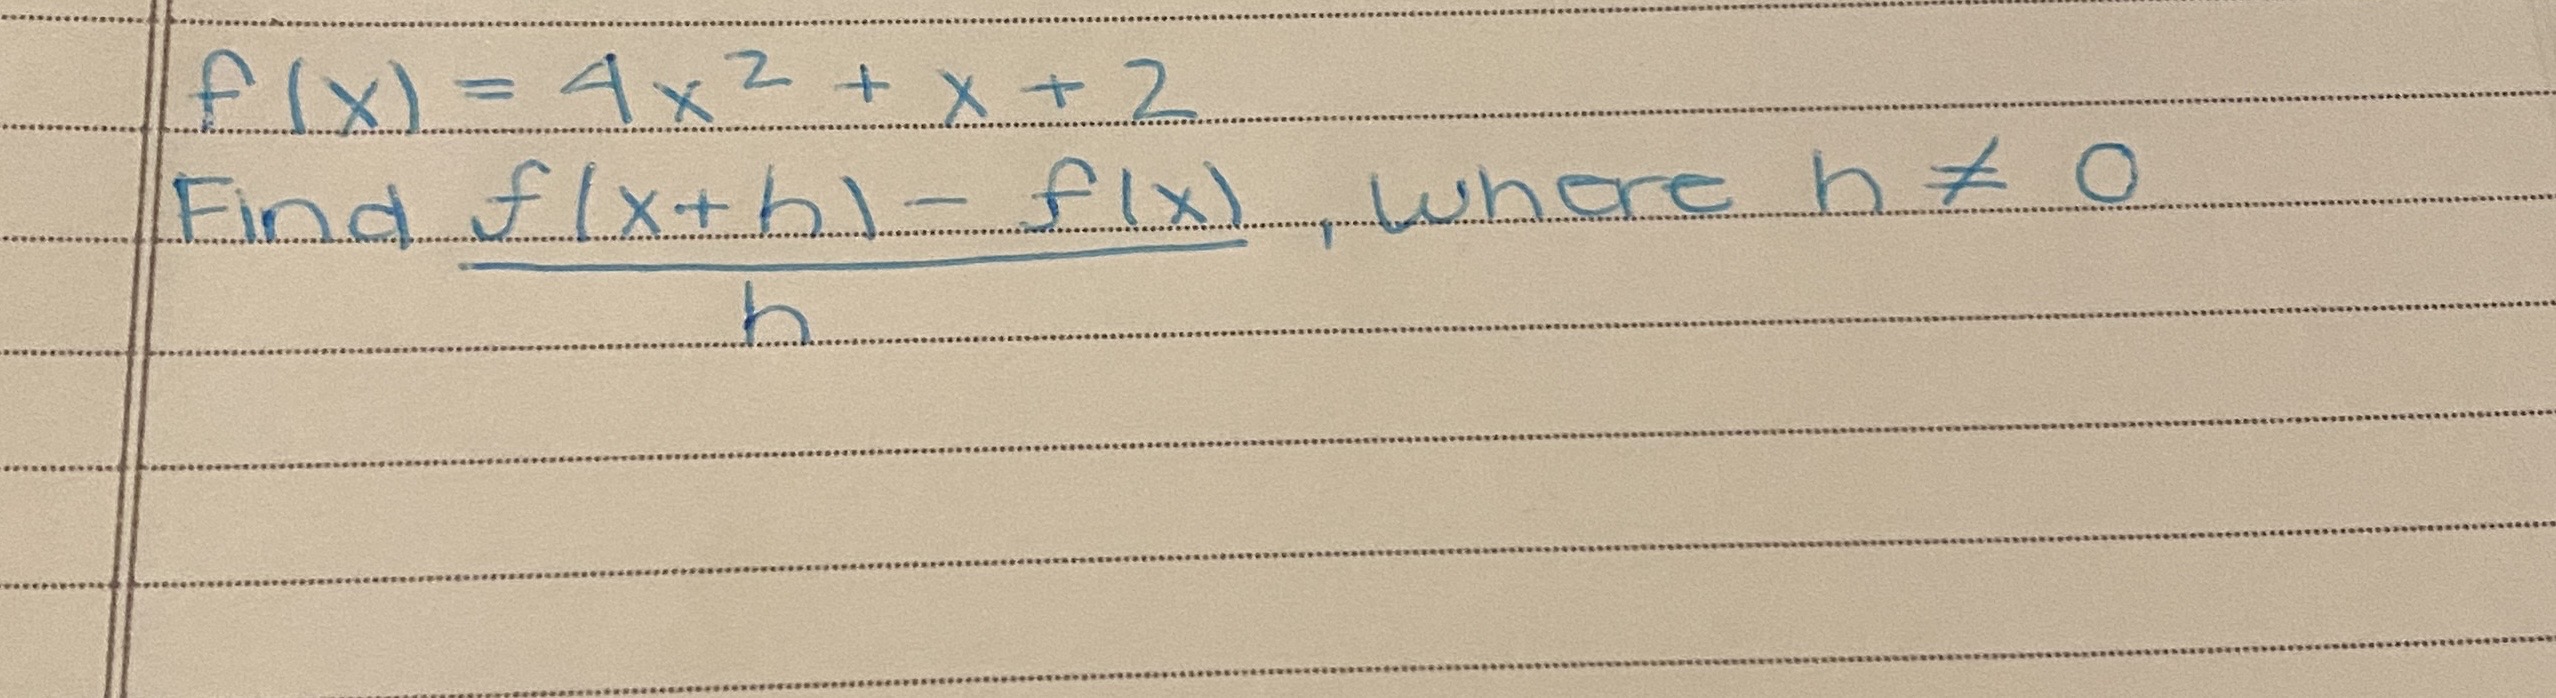 f(x) = 4x² + x + 2
Find f(x+h) - f(x), where h ≠ 0
h